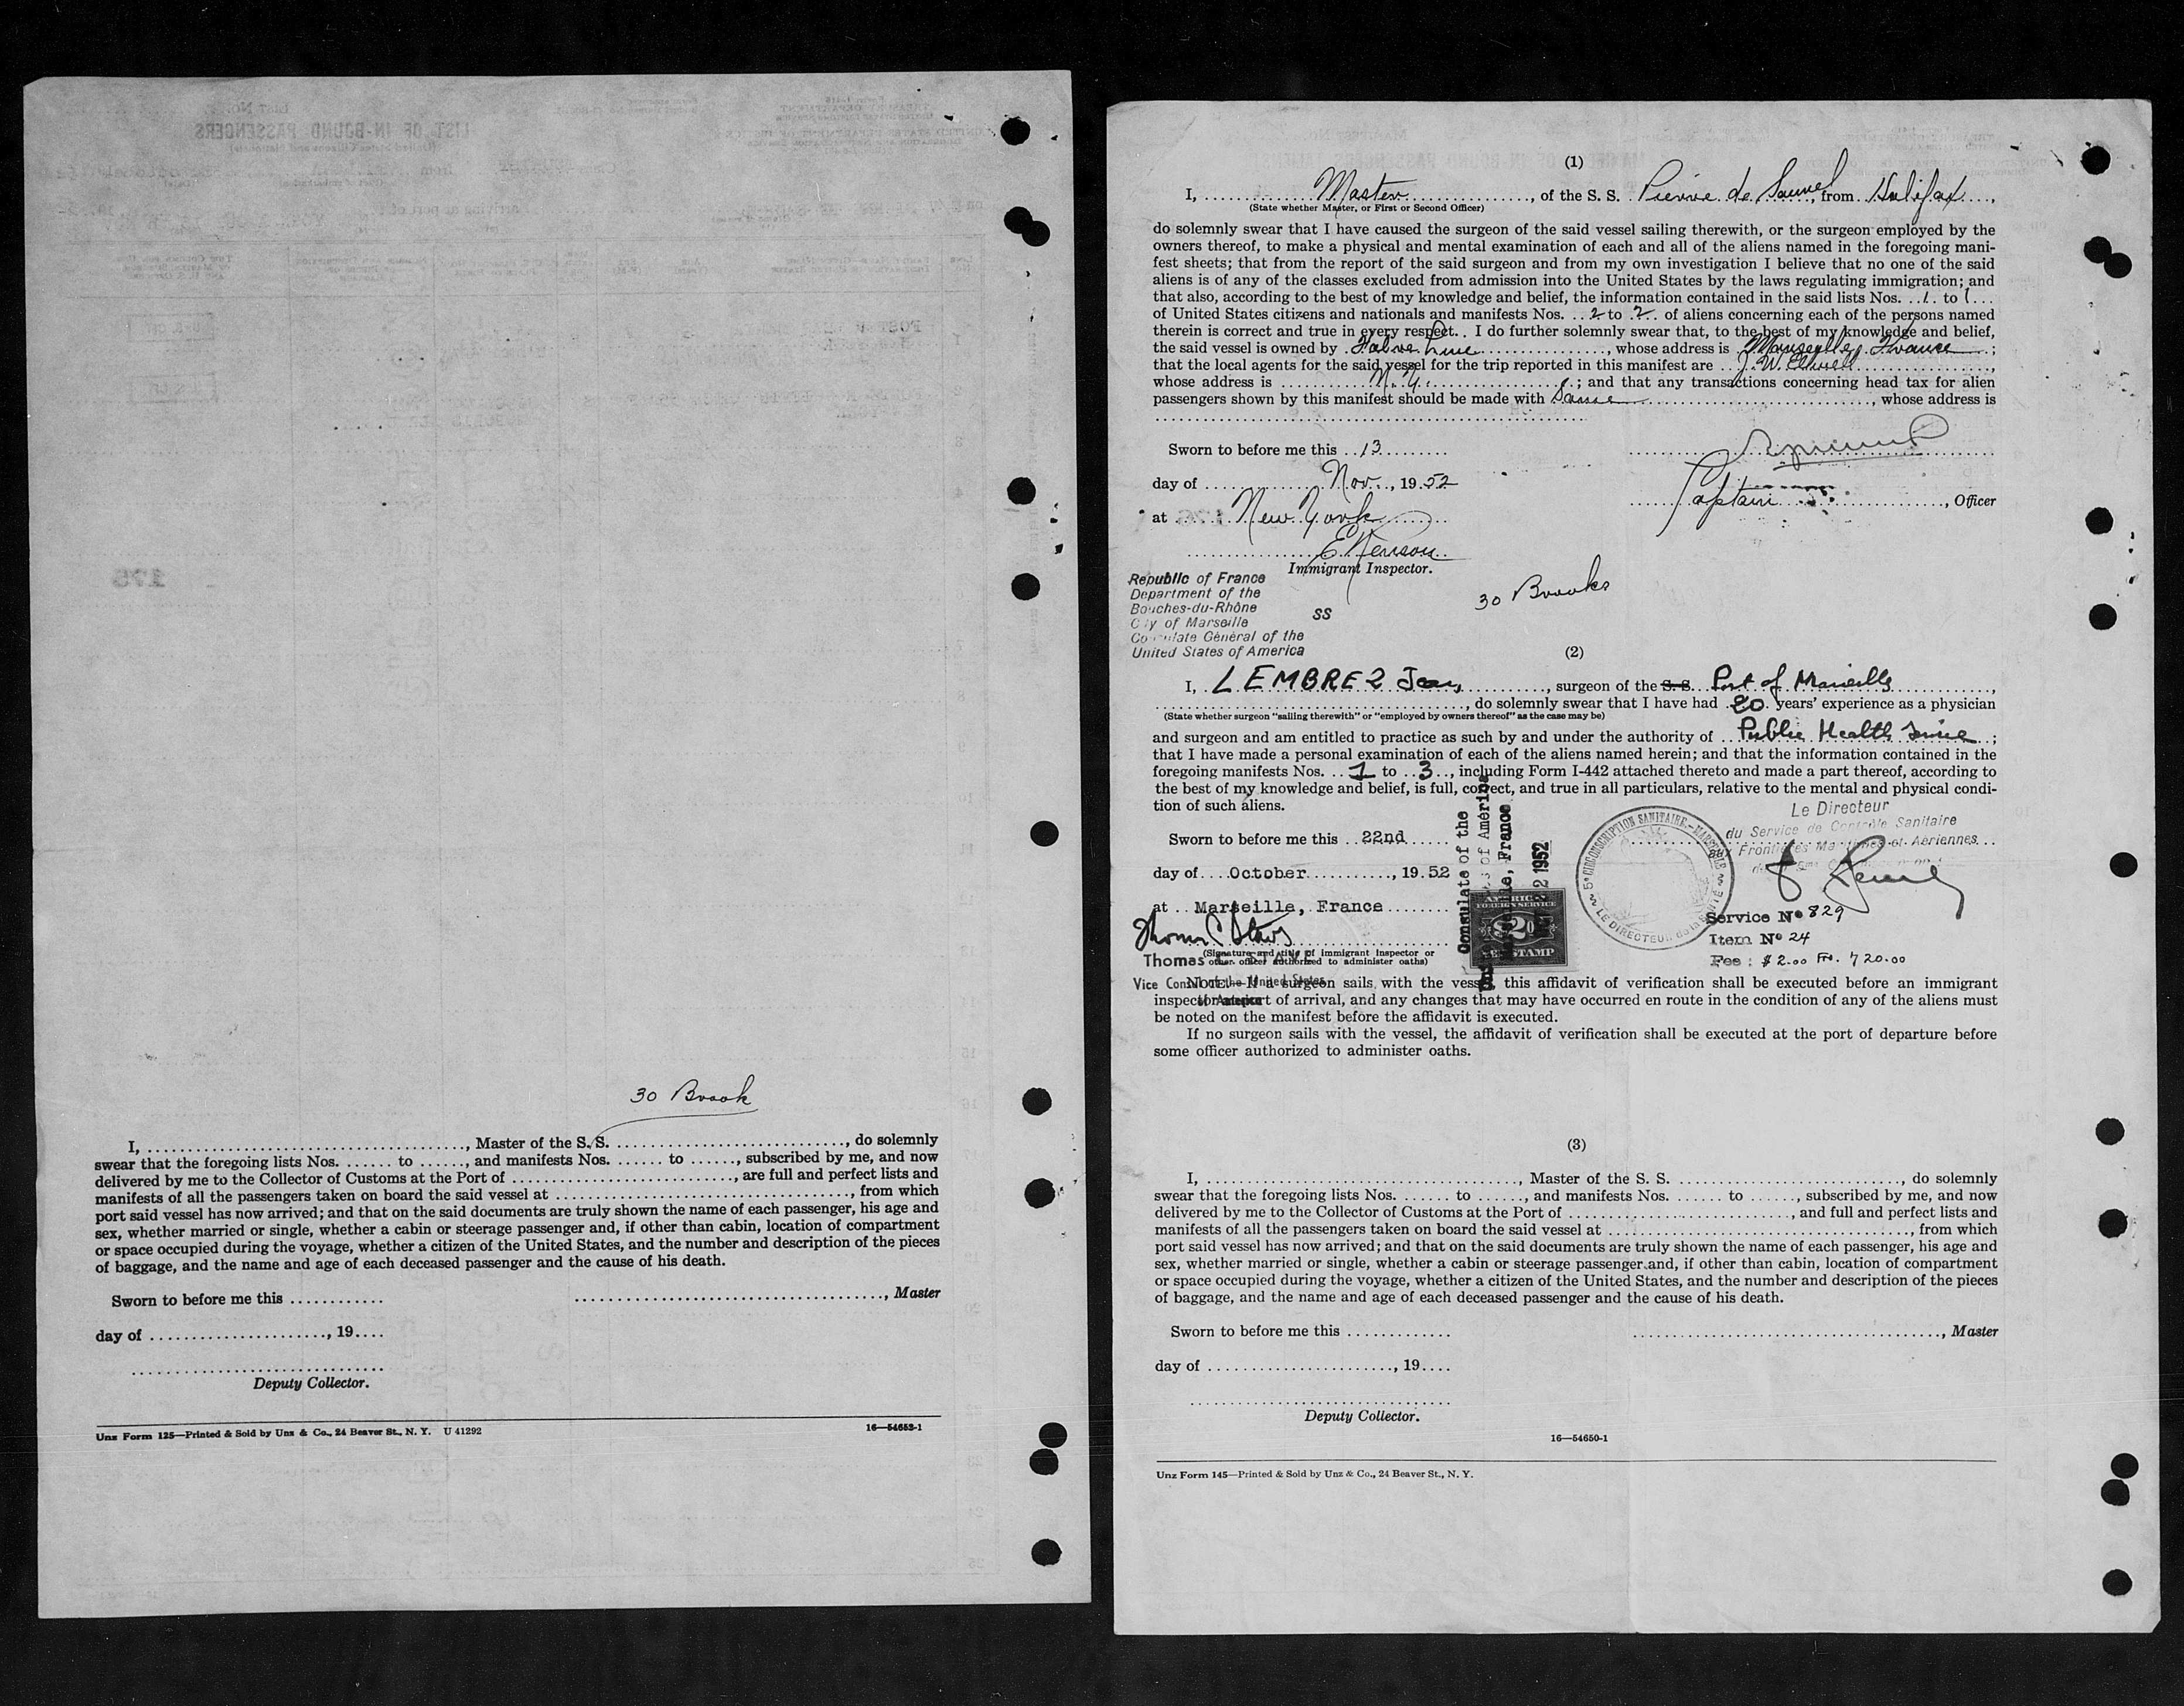 30 Brook
I, ......, Master of the S. S. ......, do solemnly
swear that the foregoing lists Nos. ...... to ......, and manifests Nos. ...... to ......, subscribed by me, and now
delivered by me to the Collector of Customs at the Port of ......, are full and perfect lists and
manifests of all the passengers taken on board the said vessel at ......, from which
port said vessel has now arrived; and that on the said documents are truly shown the name of each passenger, his age and
sex, whether married or single, whether a cabin or steerage passenger and, if other than cabin, location of compartment
or space occupied during the voyage, whether a citizen of the United States, and the number and description of the pieces
of baggage, and the name and age of each deceased passenger and the cause of his death.
Sworn to before me this ............ ......, Master
day of ......, 19....
Deputy Collector.
Unz Form 125—Printed & Sold by Unz & Co., 24 Beaver St., N. Y. U 41292 16—54652-1
(1)
I, Master, of the S. S. Pierre de Saurel, from Halifax,
(State whether Master, or First or Second Officer)
do solemnly swear that I have caused the surgeon of the said vessel sailing therewith, or the surgeon employed by the
owners thereof, to make a physical and mental examination of each and all of the aliens named in the foregoing mani-
fest sheets; that from the report of the said surgeon and from my own investigation I believe that no one of the said
aliens is of any of the classes excluded from admission into the United States by the laws regulating immigration; and
that also, according to the best of my knowledge and belief, the information contained in the said lists Nos. 1 to 1
of United States citizens and nationals and manifests Nos. 2 to 2 of aliens concerning each of the persons named
therein is correct and true in every respect. I do further solemnly swear that, to the best of my knowledge and belief,
the said vessel is owned by Fabre Line, whose address is Marseille, France;
that the local agents for the said vessel for the trip reported in this manifest are J. W. Elwell,
whose address is N. Y.; and that any transactions concerning head tax for alien
passengers shown by this manifest should be made with Same, whose address is
Sworn to before me this 13
day of Nov., 1952
Captain, Officer
at New York
Immigrant Inspector.
30 Brooks
Republic of France
Department of the
Bouches-du-Rhône
City of Marseille
SS
Consulate Général of the
United States of America
(2)
I, LEMBREZ Jean, surgeon of the S. S. Port of Marseille,
......, do solemnly swear that I have had 20 years' experience as a physician
(State whether surgeon "sailing therewith" or "employed by owners thereof" as the case may be)
and surgeon and am entitled to practice as such by and under the authority of Public Health Service;
that I have made a personal examination of each of the aliens named herein; and that the information contained in the
foregoing manifests Nos. 1 to 3, including Form I-442 attached thereto and made a part thereof, according to
the best of my knowledge and belief, is full, correct, and true in all particulars, relative to the mental and physical condi-
tion of such aliens.
Le Directeur
du Service de Contrôle Sanitaire
aux Frontières Maritimes et Aériennes
Sworn to before me this 22nd
day of October, 1952
at Marseille, France
Consulate of the
of America
France
2 1952
AMERICAN
FOREIGN SERVICE
$2
FEE STAMP
5e CIRCONSCRIPTION SANITAIRE - MARSEILLE
LE DIRECTEUR de la SANTÉ
Service No 829
Item No 24
Fee: $2.00 Frs. 720.00
(Signature and title of immigrant inspector or
other officer authorized to administer oaths)
Thomas
Vice Consul of the United States
of America
NOTE.—If a surgeon sails with the vessel, this affidavit of verification shall be executed before an immigrant
inspector at port of arrival, and any changes that may have occurred en route in the condition of any of the aliens must
be noted on the manifest before the affidavit is executed.
If no surgeon sails with the vessel, the affidavit of verification shall be executed at the port of departure before
some officer authorized to administer oaths.
(3)
I, ......, Master of the S. S. ......, do solemnly
swear that the foregoing lists Nos. ...... to ......, and manifests Nos. ...... to ......, subscribed by me, and now
delivered by me to the Collector of Customs at the Port of ......, and full and perfect lists and
manifests of all the passengers taken on board the said vessel at ......, from which
port said vessel has now arrived; and that on the said documents are truly shown the name of each passenger, his age and
sex, whether married or single, whether a cabin or steerage passenger and, if other than cabin, location of compartment
or space occupied during the voyage, whether a citizen of the United States, and the number and description of the pieces
of baggage, and the name and age of each deceased passenger and the cause of his death.
Sworn to before me this ............ ......, Master
day of ......, 19....
Deputy Collector.
16—54650-1
Unz Form 145—Printed & Sold by Unz & Co., 24 Beaver St., N. Y.